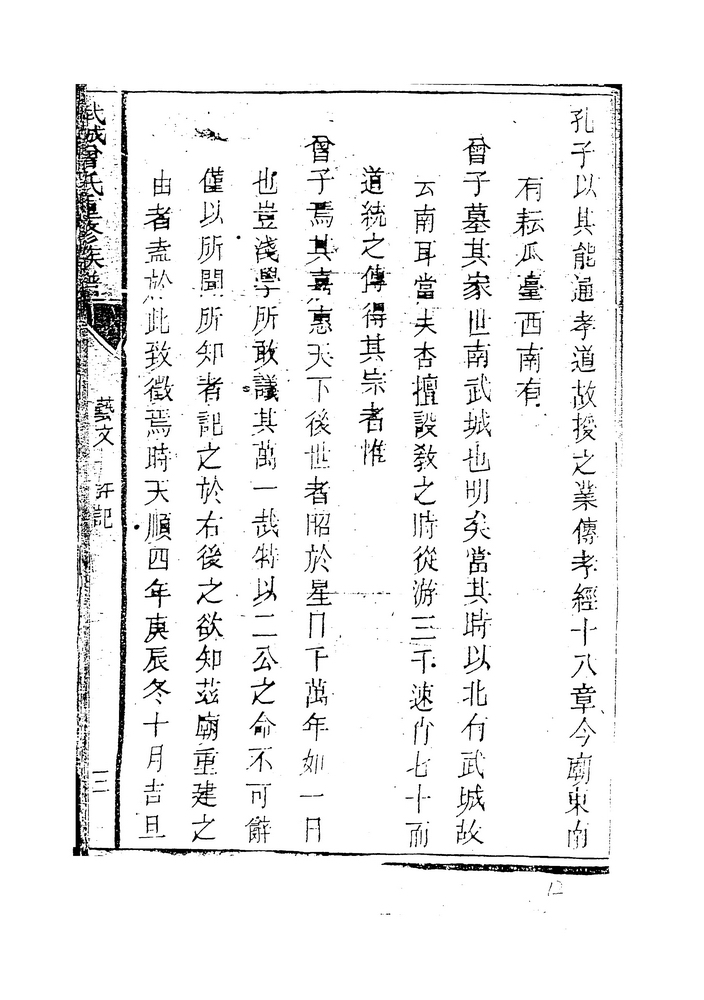 孔子以其能通孝道故授之業傳孝經十八章今廟東南
有耘瓜臺西南有
曾子墓其家世南武城也明矣當其時以北有武城故
云南耳當夫杏擅設教之時從游三千速肖七十而
道統之傳得其宗者惟
曾子焉其嘉惠天下後世者昭於星日千萬年如一日
也豈淺學所敢議其萬一哉特以二公之命不可辭
僅以所聞所知者記之於右後之欲知茲廟重建之
由者盍於此致徵焉時天順四年庚辰冬十月吉旦
武城曾氏重修族譜
藝文 許記
三
12